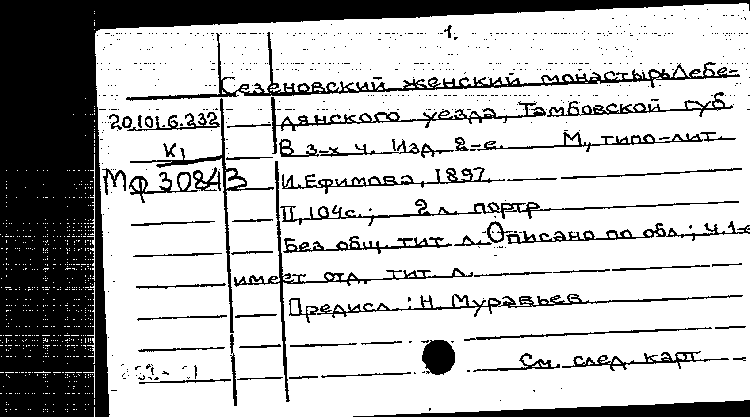 1.
Сезеновский женский монастырь Лебе-
20.101.6.232 дянского уезда, Тамбовской губ
К1 В 3-х ч. Изд. 2-е. М., типо-лит.
МФ 30843 И. Ефимова, 1897.
II, 104с.; 2 л. портр
Без общ. тит. л. Описано по обл.; ч. 1-
имеет отд. тит. л.
Предисл.: Н. Муравьев
См. след. карт.